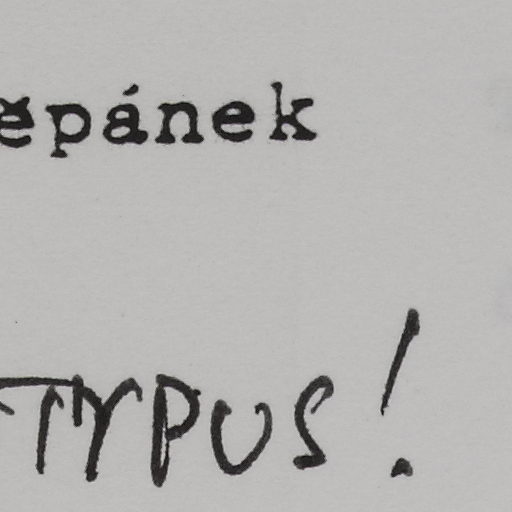 ěpánek
TYPUS!